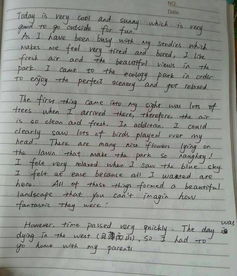 NO.
Date
Today is very cool and sunny which is very
good to go outside for fun.
As I have been busy with my studies which
makes me feel very tired and bored, I like
fresh air and the beautiful views in the
park I came to the ecology park in order
to enjoy the perfect scenery and get relaxed.
The first thing came into my sight was lots of
trees when I arrived there, therefore the air
is so clean and fresh. In addition, I could
clearly saw lots of birds played over my
head. There are many nice flowers lying on
the lawn that make the park so naughty!
I felt very relaxed when I saw the blue sky
I felt at ease because all I wanted are
here. All of these things formed a beautiful
landscape that you can't imagin how
fantastic they were.
However time passed very quickly. The day was
dying in the west, so I had to
go home with my parents